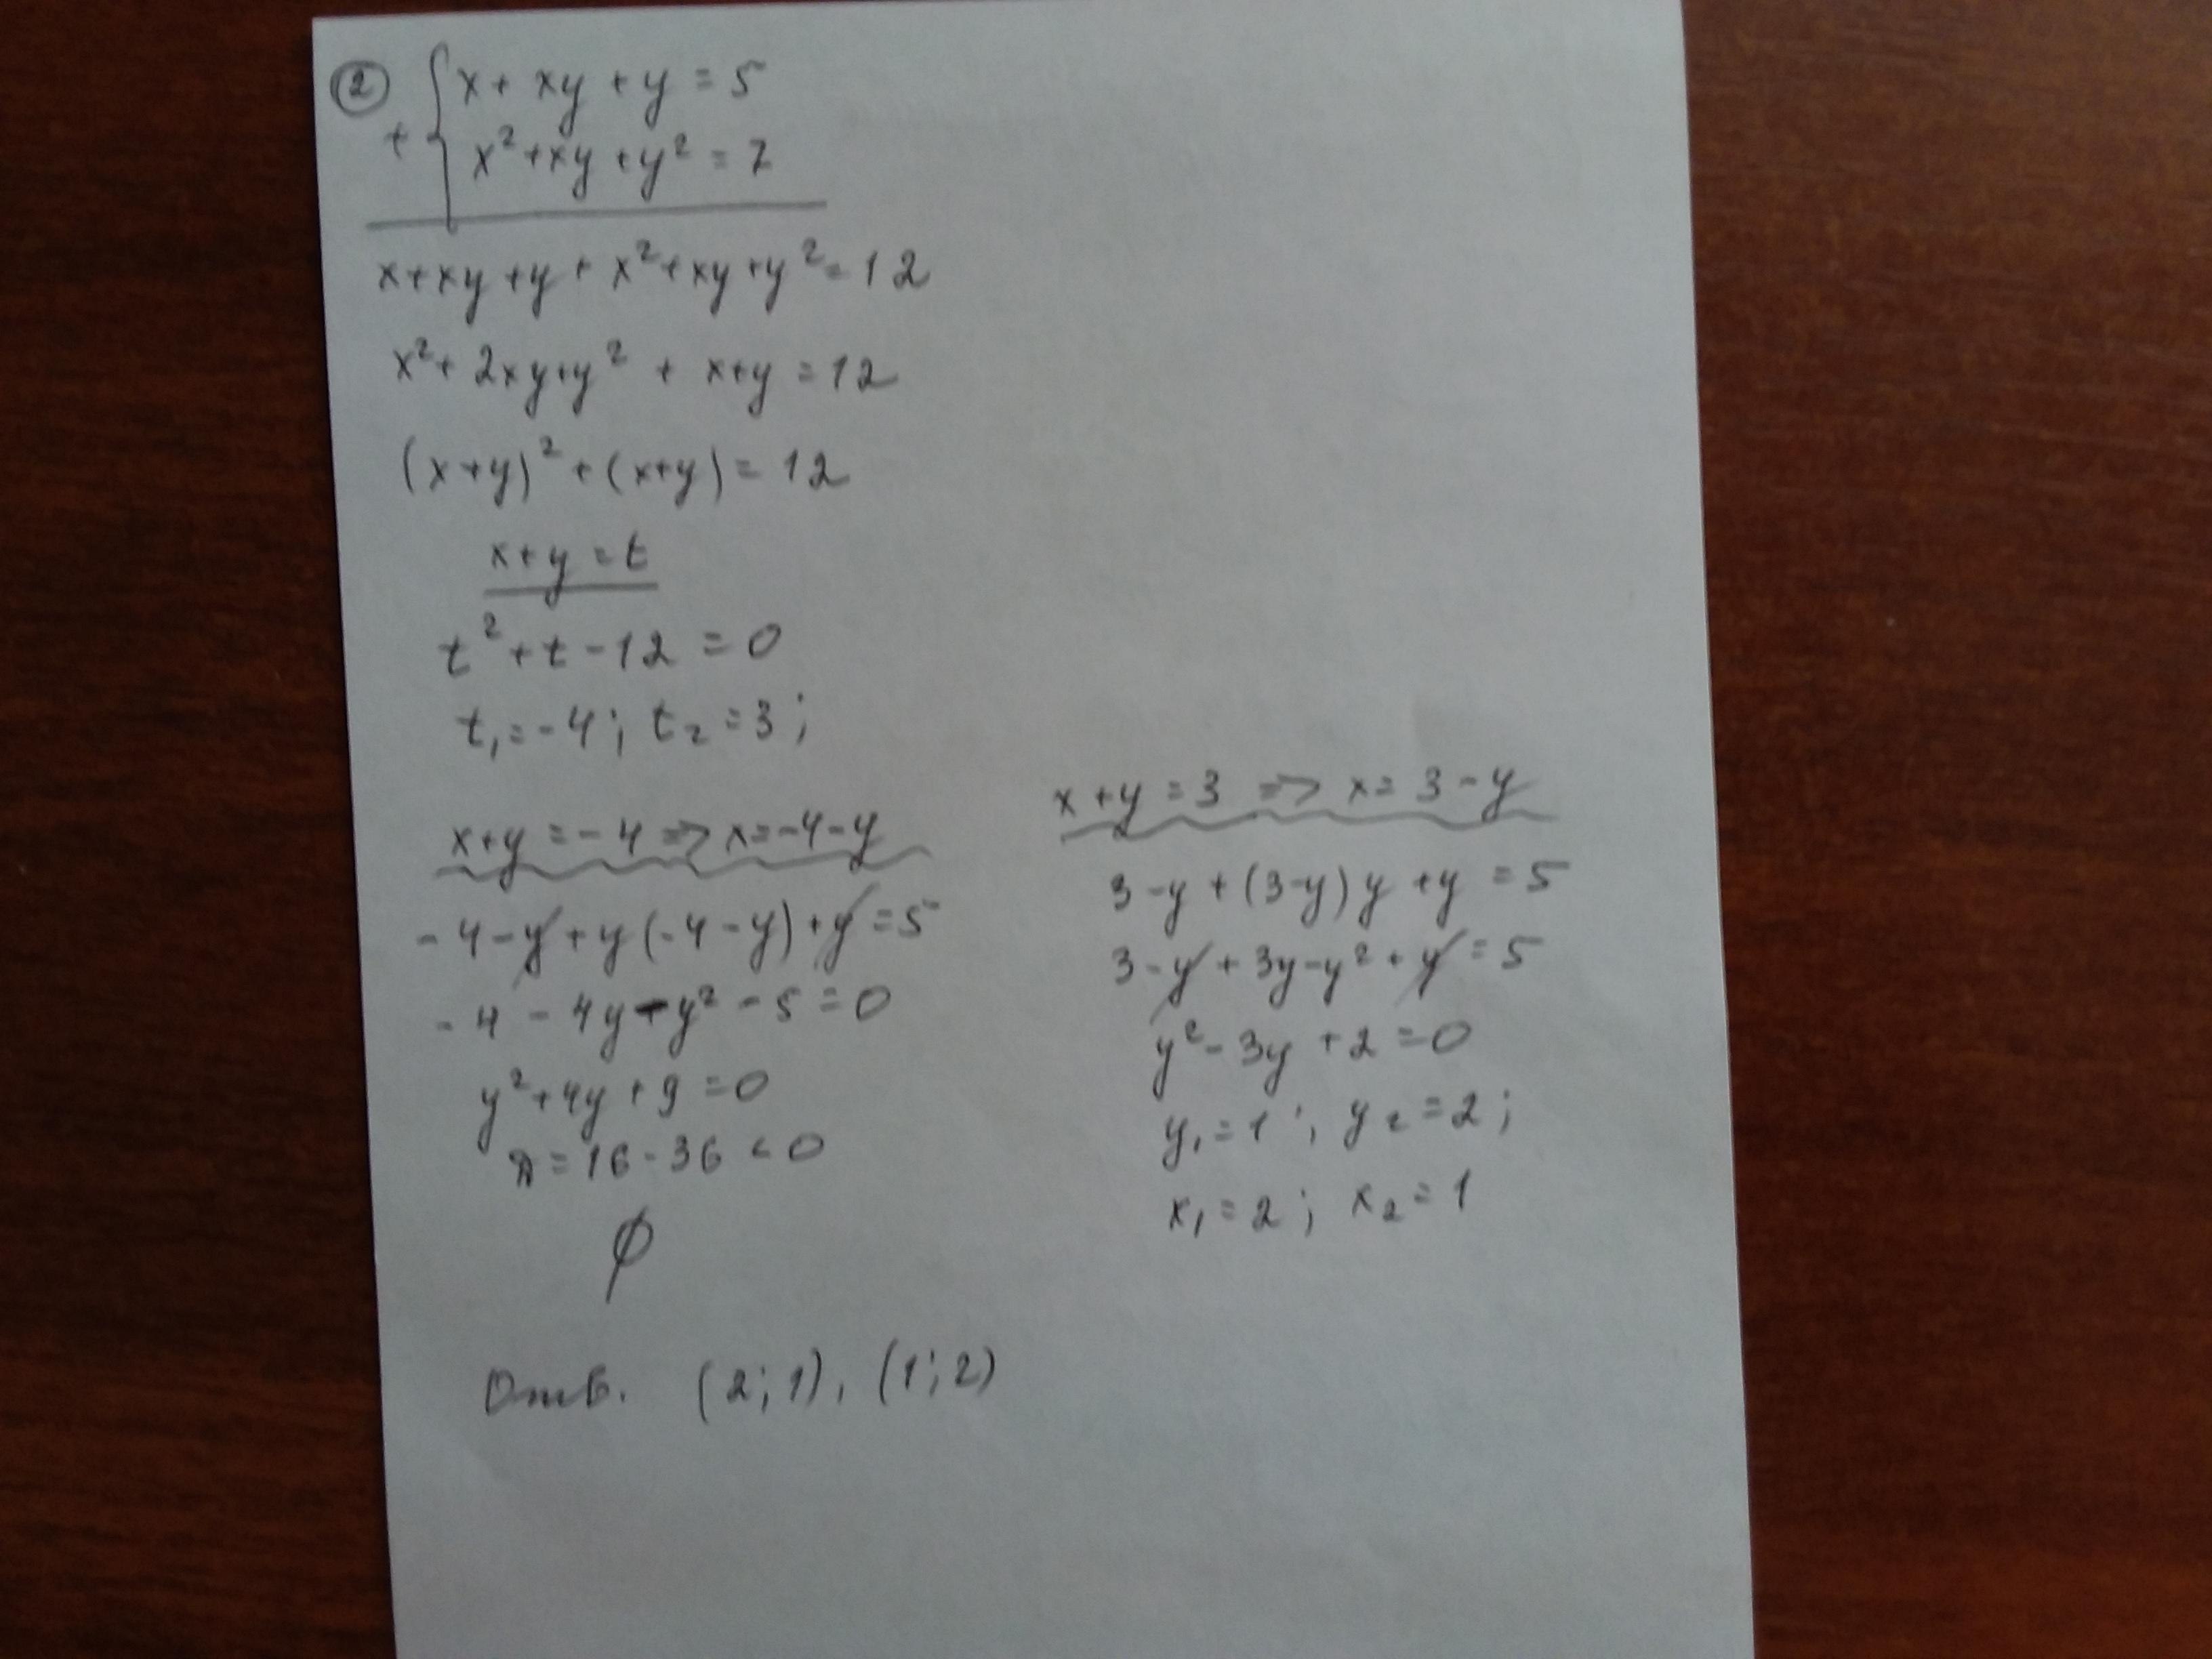 ② x + xy + y = 5
+ { x² + xy + y² = 7
x + xy + y + x² + xy + y² = 12
x² + 2xy + y² + x + y = 12
(x + y)² + (x + y) = 12
x + y = t
t² + t - 12 = 0
t₁ = -4; t₂ = 3;
x + y = -4 => x = -4 - y
-4 - y + y(-4 - y) + y = 5
-4 - 4y - y² - 5 = 0
y² + 4y + 9 = 0
Д = 16 - 36 < 0
∅
x + y = 3 => x = 3 - y
3 - y + (3 - y)y + y = 5
3 - y + 3y - y² + y = 5
y² - 3y + 2 = 0
y₁ = 1; y₂ = 2;
x₁ = 2; x₂ = 1
Отв. (2; 1), (1; 2)